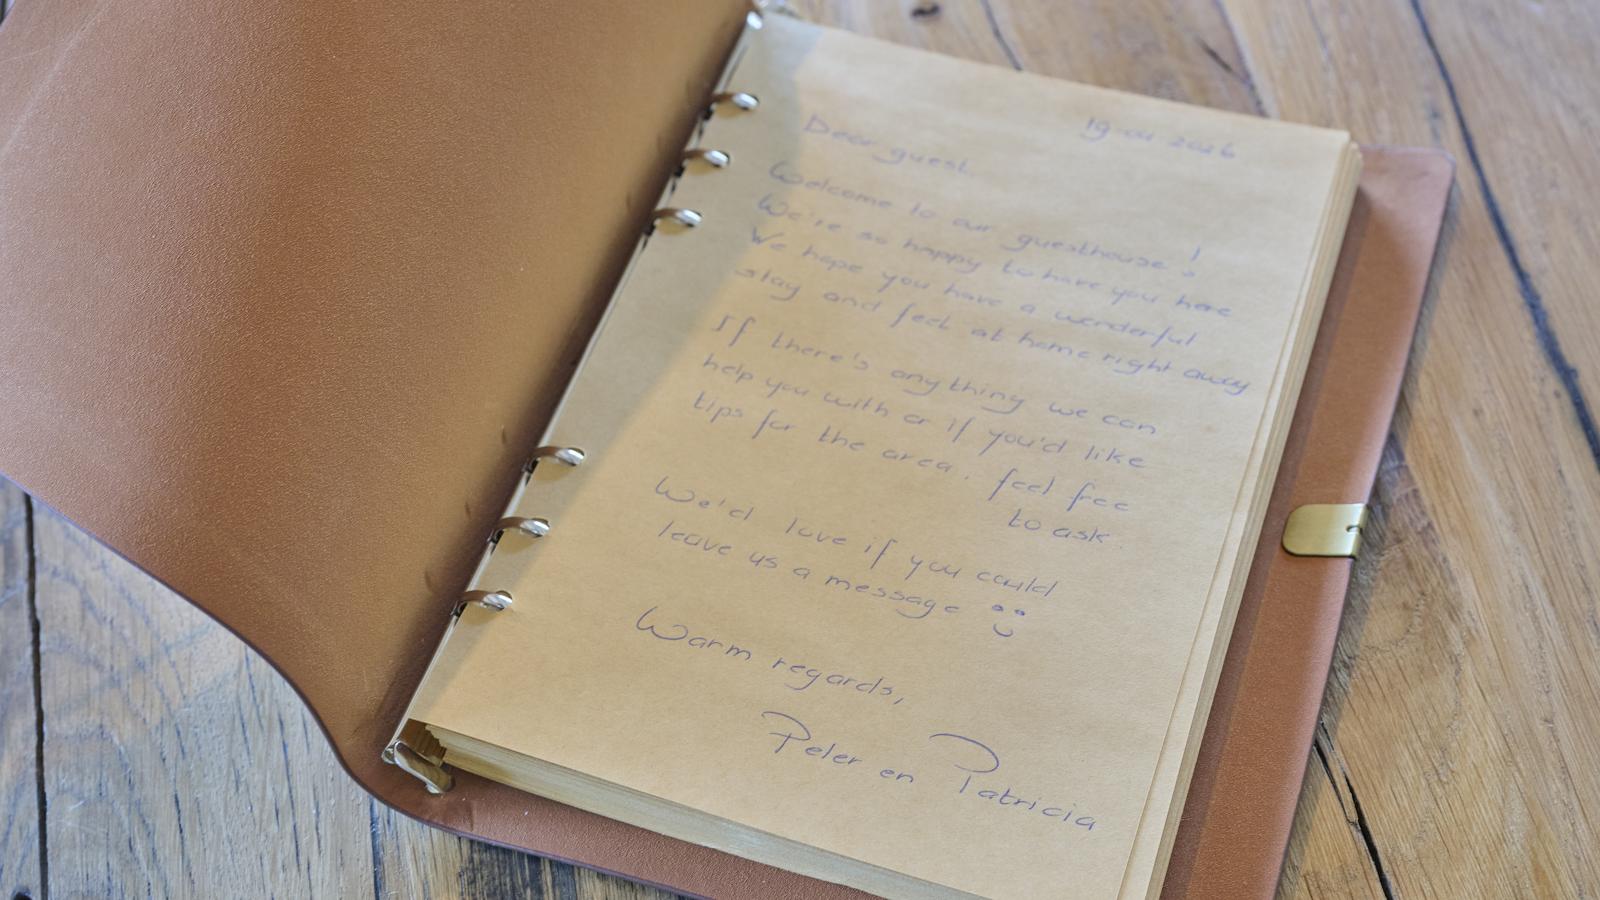 19-01-2026
Dear guest.
Welcome to our guesthouse!
We're so happy to have you here
We hope you have a wonderful
stay and feel at home right away
If there's anything we can
help you with or if you'd like
tips for the area. feel free
to ask.
We'd love if you could
leave us a message
Warm regards,
Peter en Patricia